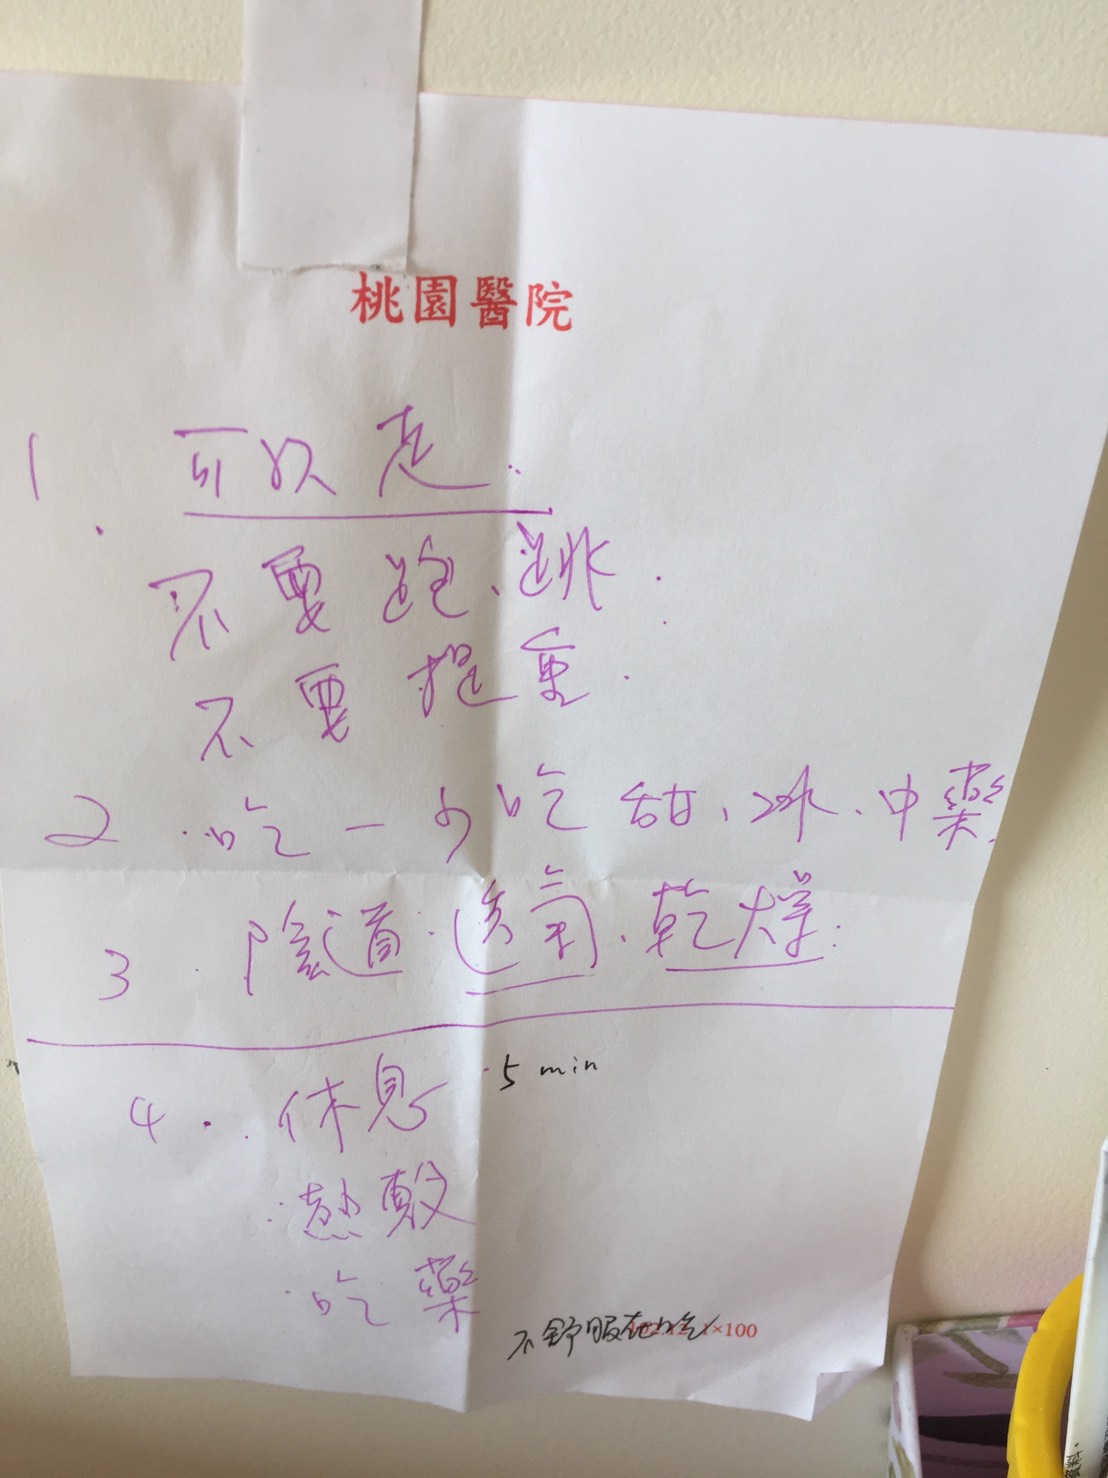 桃園醫院
1. 可以走.
不要跑、跳.
不要提重.
2. 吃-少吃甜、冰、中藥.
3. 陰道.透氣、乾燥.
4. 休息 5 min
熱敷
吃藥
不舒服在吃
×100